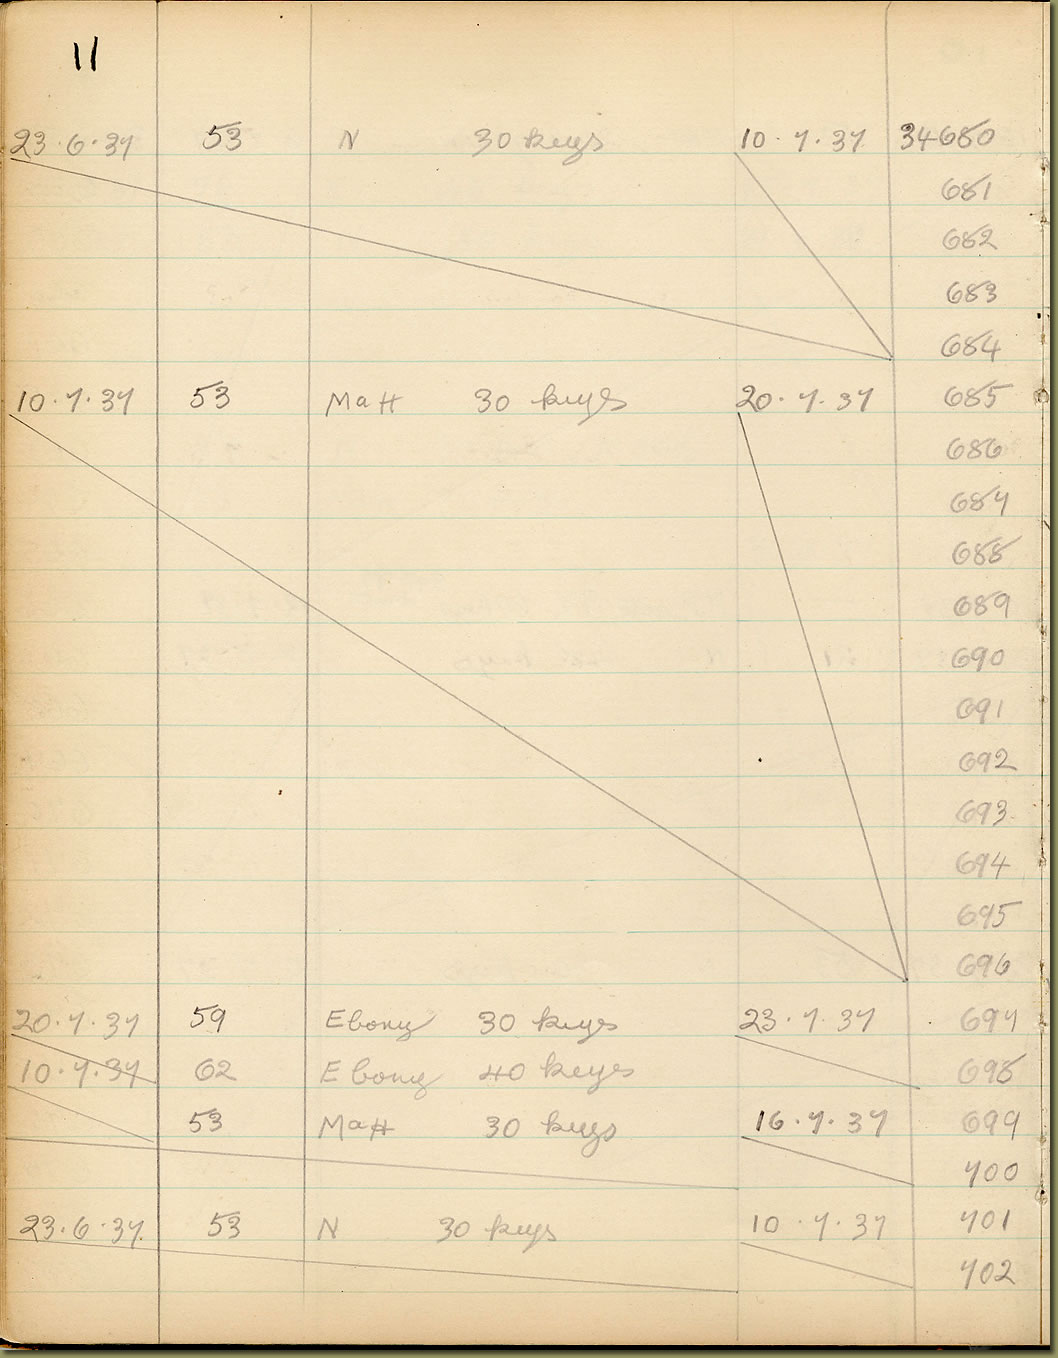 11
23.6.37 53 N 30 keys 10.7.37 34680
681
682
683
684
10.7.37 53 MaH 30 keys 20.7.37 685
686
687
688
689
690
691
692
693
694
695
696
20.7.37 59 Ebony 30 keys 23.7.37 697
10.7.37 62 Ebony 40 keyes 698
53 MaH 30 keys 16.7.37 699
700
23.6.37. 53 N 30 keys 10.7.37 701
702